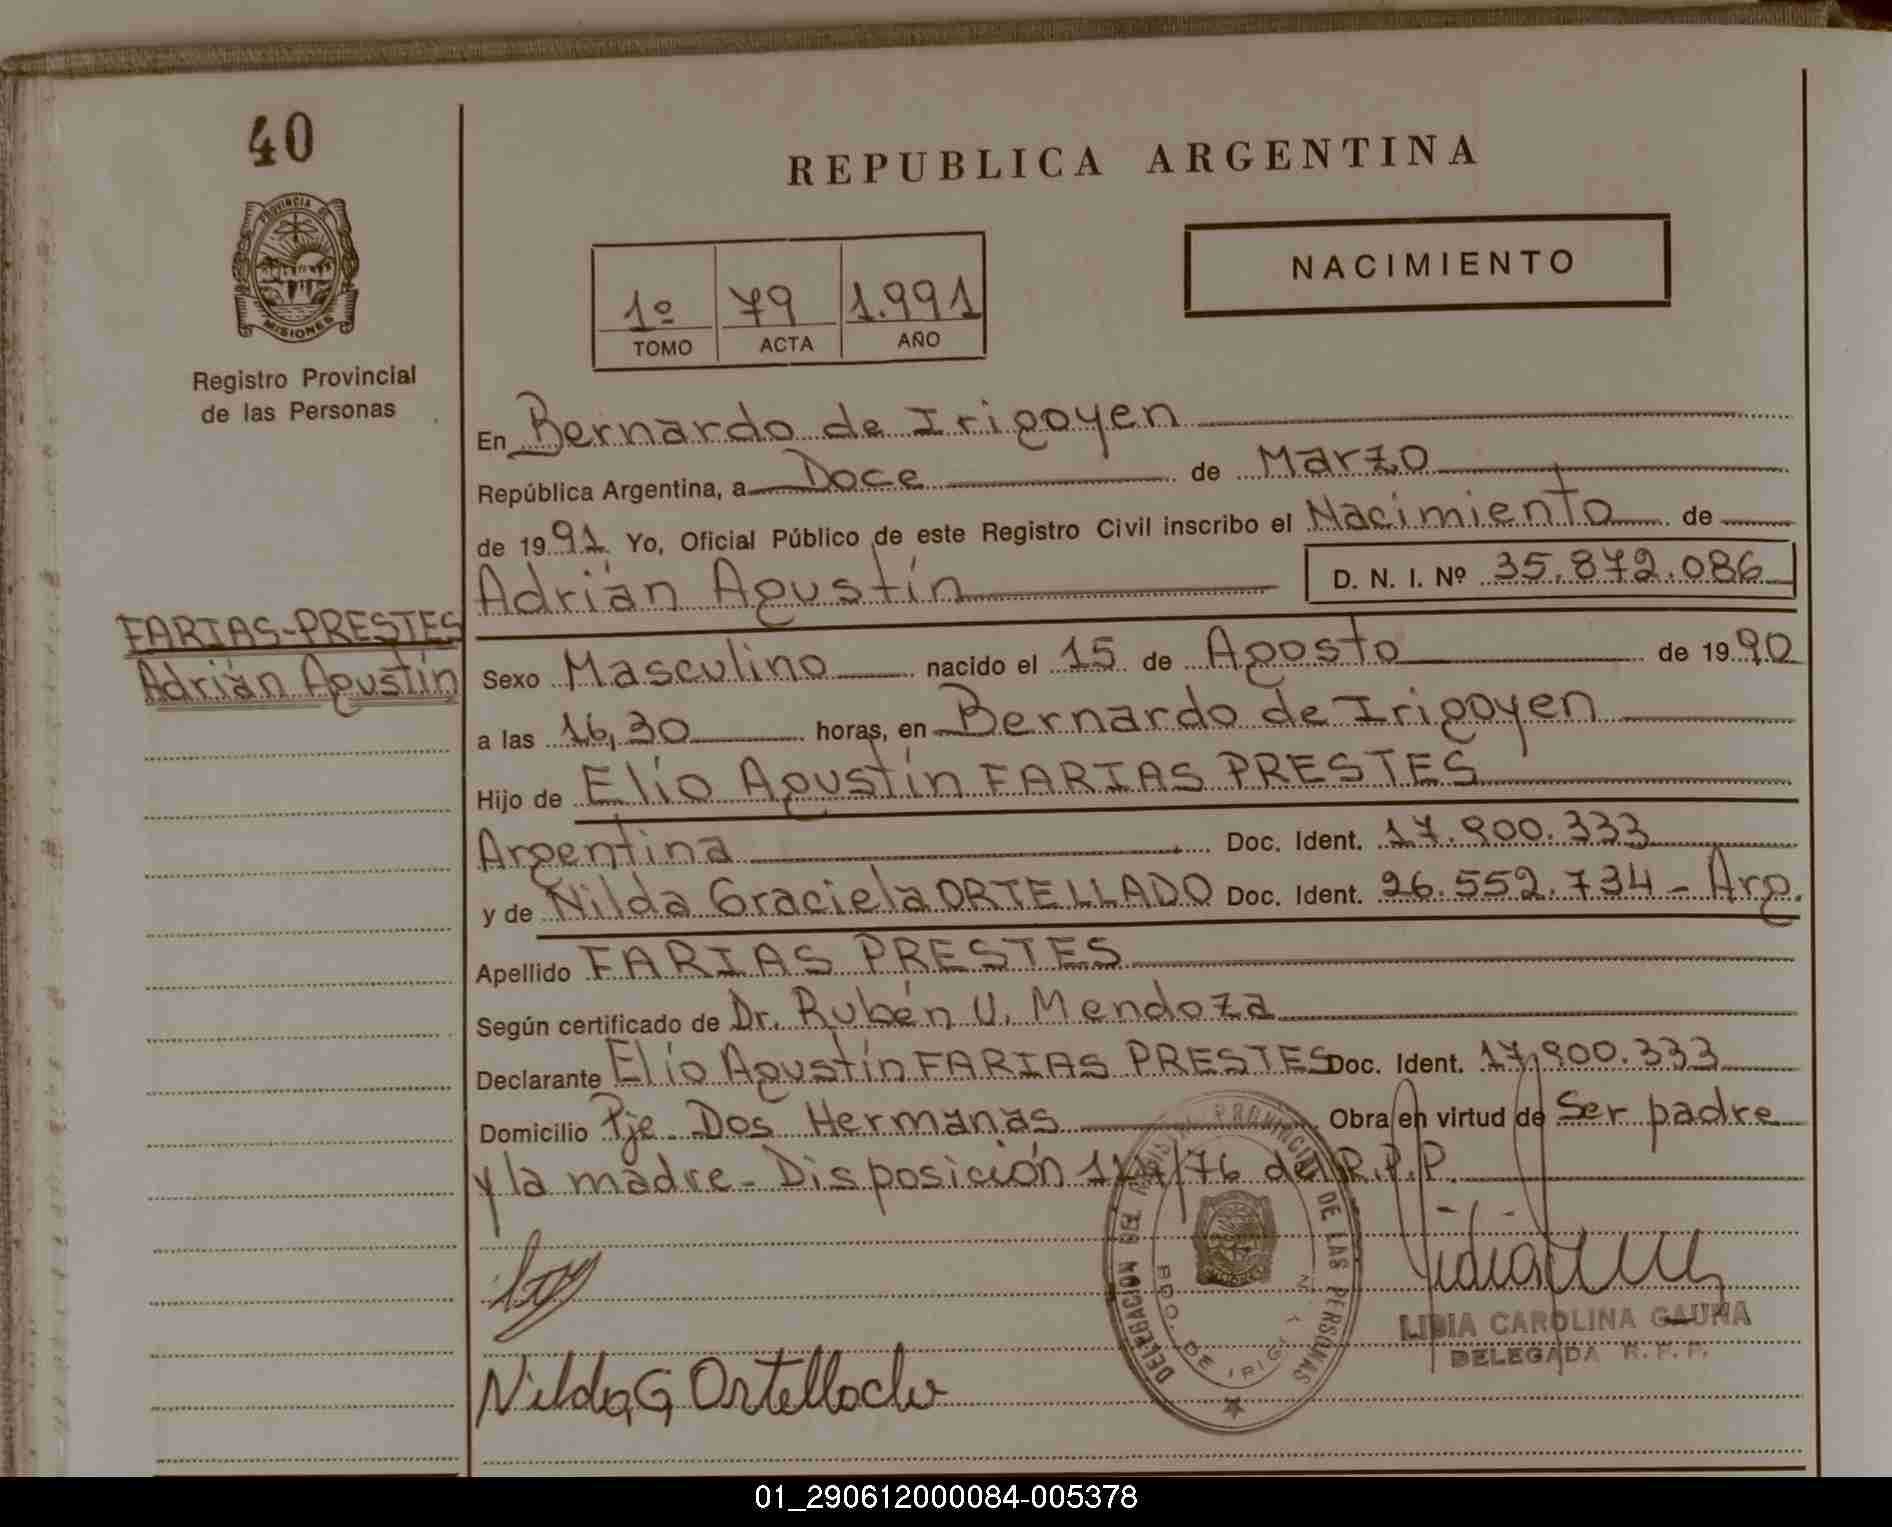 40
PROVINCIA DE
MISIONES
Registro Provincial
de las Personas
FARIAS-PRESTES
Adrián Agustín
REPUBLICA ARGENTINA
NACIMIENTO
1º 79 1.991
TOMO ACTA AÑO
En Bernardo de Irigoyen
República Argentina, a Doce de Marzo
de 1991 Yo, Oficial Público de este Registro Civil inscribo el Nacimiento de
Adrián Agustín D. N. I. Nº 35.872.086
Sexo Masculino nacido el 15 de Agosto de 1990
a las 16,30 horas, en Bernardo de Irigoyen
Hijo de Elío Agustín FARIAS PRESTES
Argentina Doc. Ident. 17.900.333
y de Nilda Graciela ORTELLADO Doc. Ident. 26.552.734 - Arg.
Apellido FARIAS PRESTES
Según certificado de Dr. Rubén U. Mendoza
Declarante Elío Agustín FARIAS PRESTES Doc. Ident. 17.900.333
Domicilio Pje. Dos Hermanas Obra en virtud de Ser padre
y la madre - Disposición /76 del R.P.P.
DELEGACION REGISTRO PROVINCIAL DE LAS PERSONAS
BDO. DE IRIGOYEN
LIDIA CAROLINA GAUNA
DELEGADA R. P. P.
Nilda G Ortellado
01_290612000084-005378